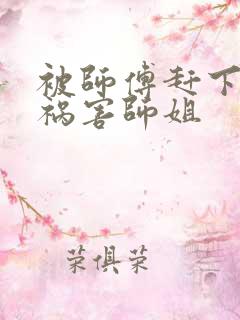 被師傅赶下
祸害師姐
荣俱荣